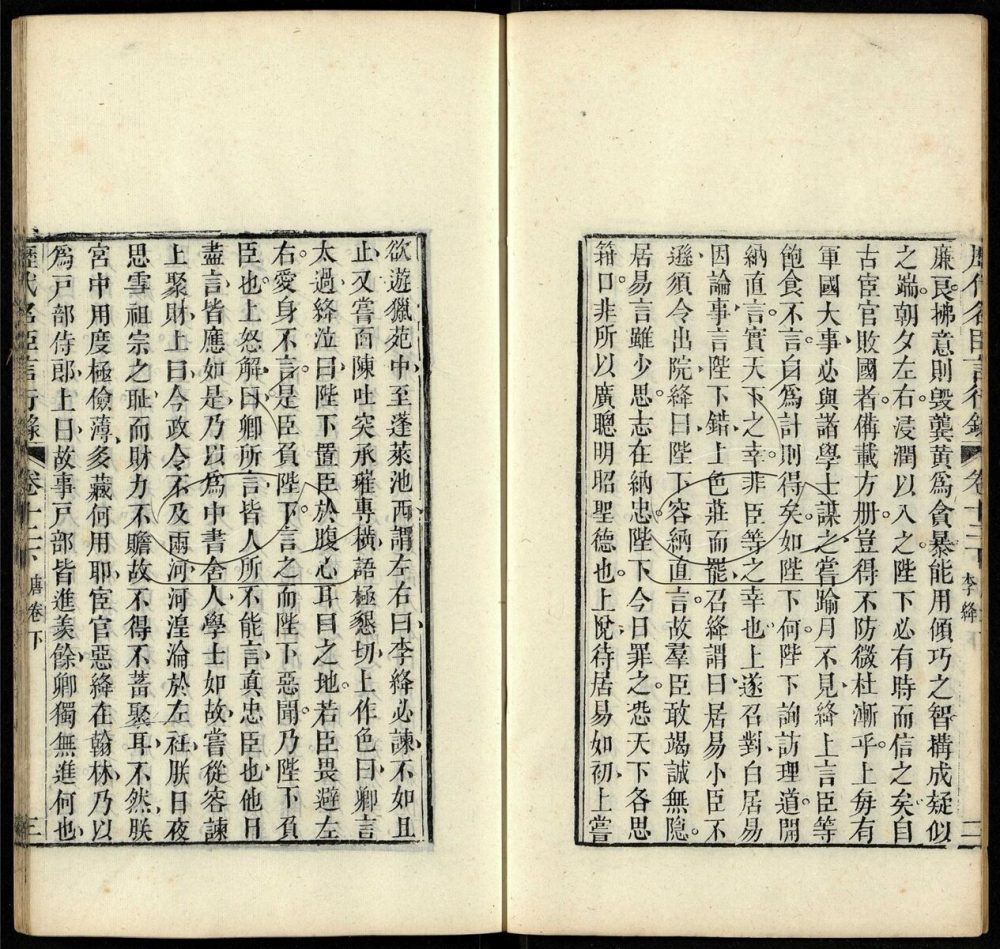 歷代名臣言行錄 卷十二下 李絳 二
廉良拂意則毀龔黃爲貪暴能用傾巧之智構成疑似
之端朝夕左右浸潤以入之陛下必有時而信之矣自
古宦官敗國者備載方册豈得不防微杜漸乎上每有
軍國大事必與諸學士謀之嘗踰月不見絳上言臣等
飽食不言自爲計則得矣如陛下何陛下詢訪理道開
納直言實天下之幸非臣等之幸也上遂召對白居易
因論事言陛下錯上色莊而罷召絳謂曰居易小臣不
遜須令出院絳曰陛下容納直言故羣臣敢竭誠無隱
居易言雖少思志在納忠陛下今日罪之恐天下各思
箝口非所以廣聰明昭聖德也上悅待居易如初上嘗
欲遊獵苑中至蓬萊池西謂左右曰李絳必諫不如且
止又嘗面陳吐突承璀專橫語極懇切上作色曰卿言
太過絳泣曰陛下置臣於腹心耳目之地若臣畏避左
右愛身不言是臣負陛下言之而陛下惡聞乃陛下負
臣也上怒解曰卿所言皆人所不能言眞忠臣也他日
盡言皆應如是乃以爲中書舍人學士如故嘗從容諫
上聚財上曰今政令不及兩河河湟淪於左衽朕日夜
思雪祖宗之耻而財力不贍故不得不蓄聚耳不然朕
宮中用度極儉薄多藏何用耶宦官惡絳在翰林乃以
爲戶部侍郎上曰故事戶部皆進羡餘卿獨無進何也
歷代名臣言行錄 卷十二下 唐卷下 三